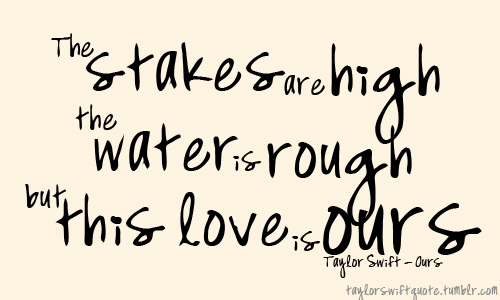 The stakes are high
the water is rough
but this love is ours
Taylor Swift - Ours
taylorswiftquote.tumblr.com